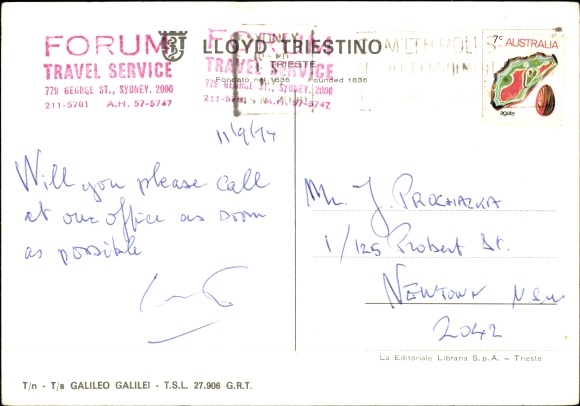 FORUM
TRAVEL SERVICE
779 GEORGE ST., SYDNEY, 2000
211-5781 A.H. 57-5747
LLOYD TRIESTINO
TRIESTE
Fondato nel 1836 Founded 1836
FORUM
TRAVEL SERVICE
779 GEORGE ST., SYDNEY, 2000
211-5781 A.H. 57-5747
SYDNEY
7c AUSTRALIA
agate
11/9/74
Will you please call
at our office as soon
as possible
Mr. J. PROCHAZKA
1/125 Probert St.
NEWTOWN N.S.W
2042
La Editoriale Libraria S.p.A. – Trieste
T/n - T/s GALILEO GALILEI - T.S.L. 27.906 G.R.T.